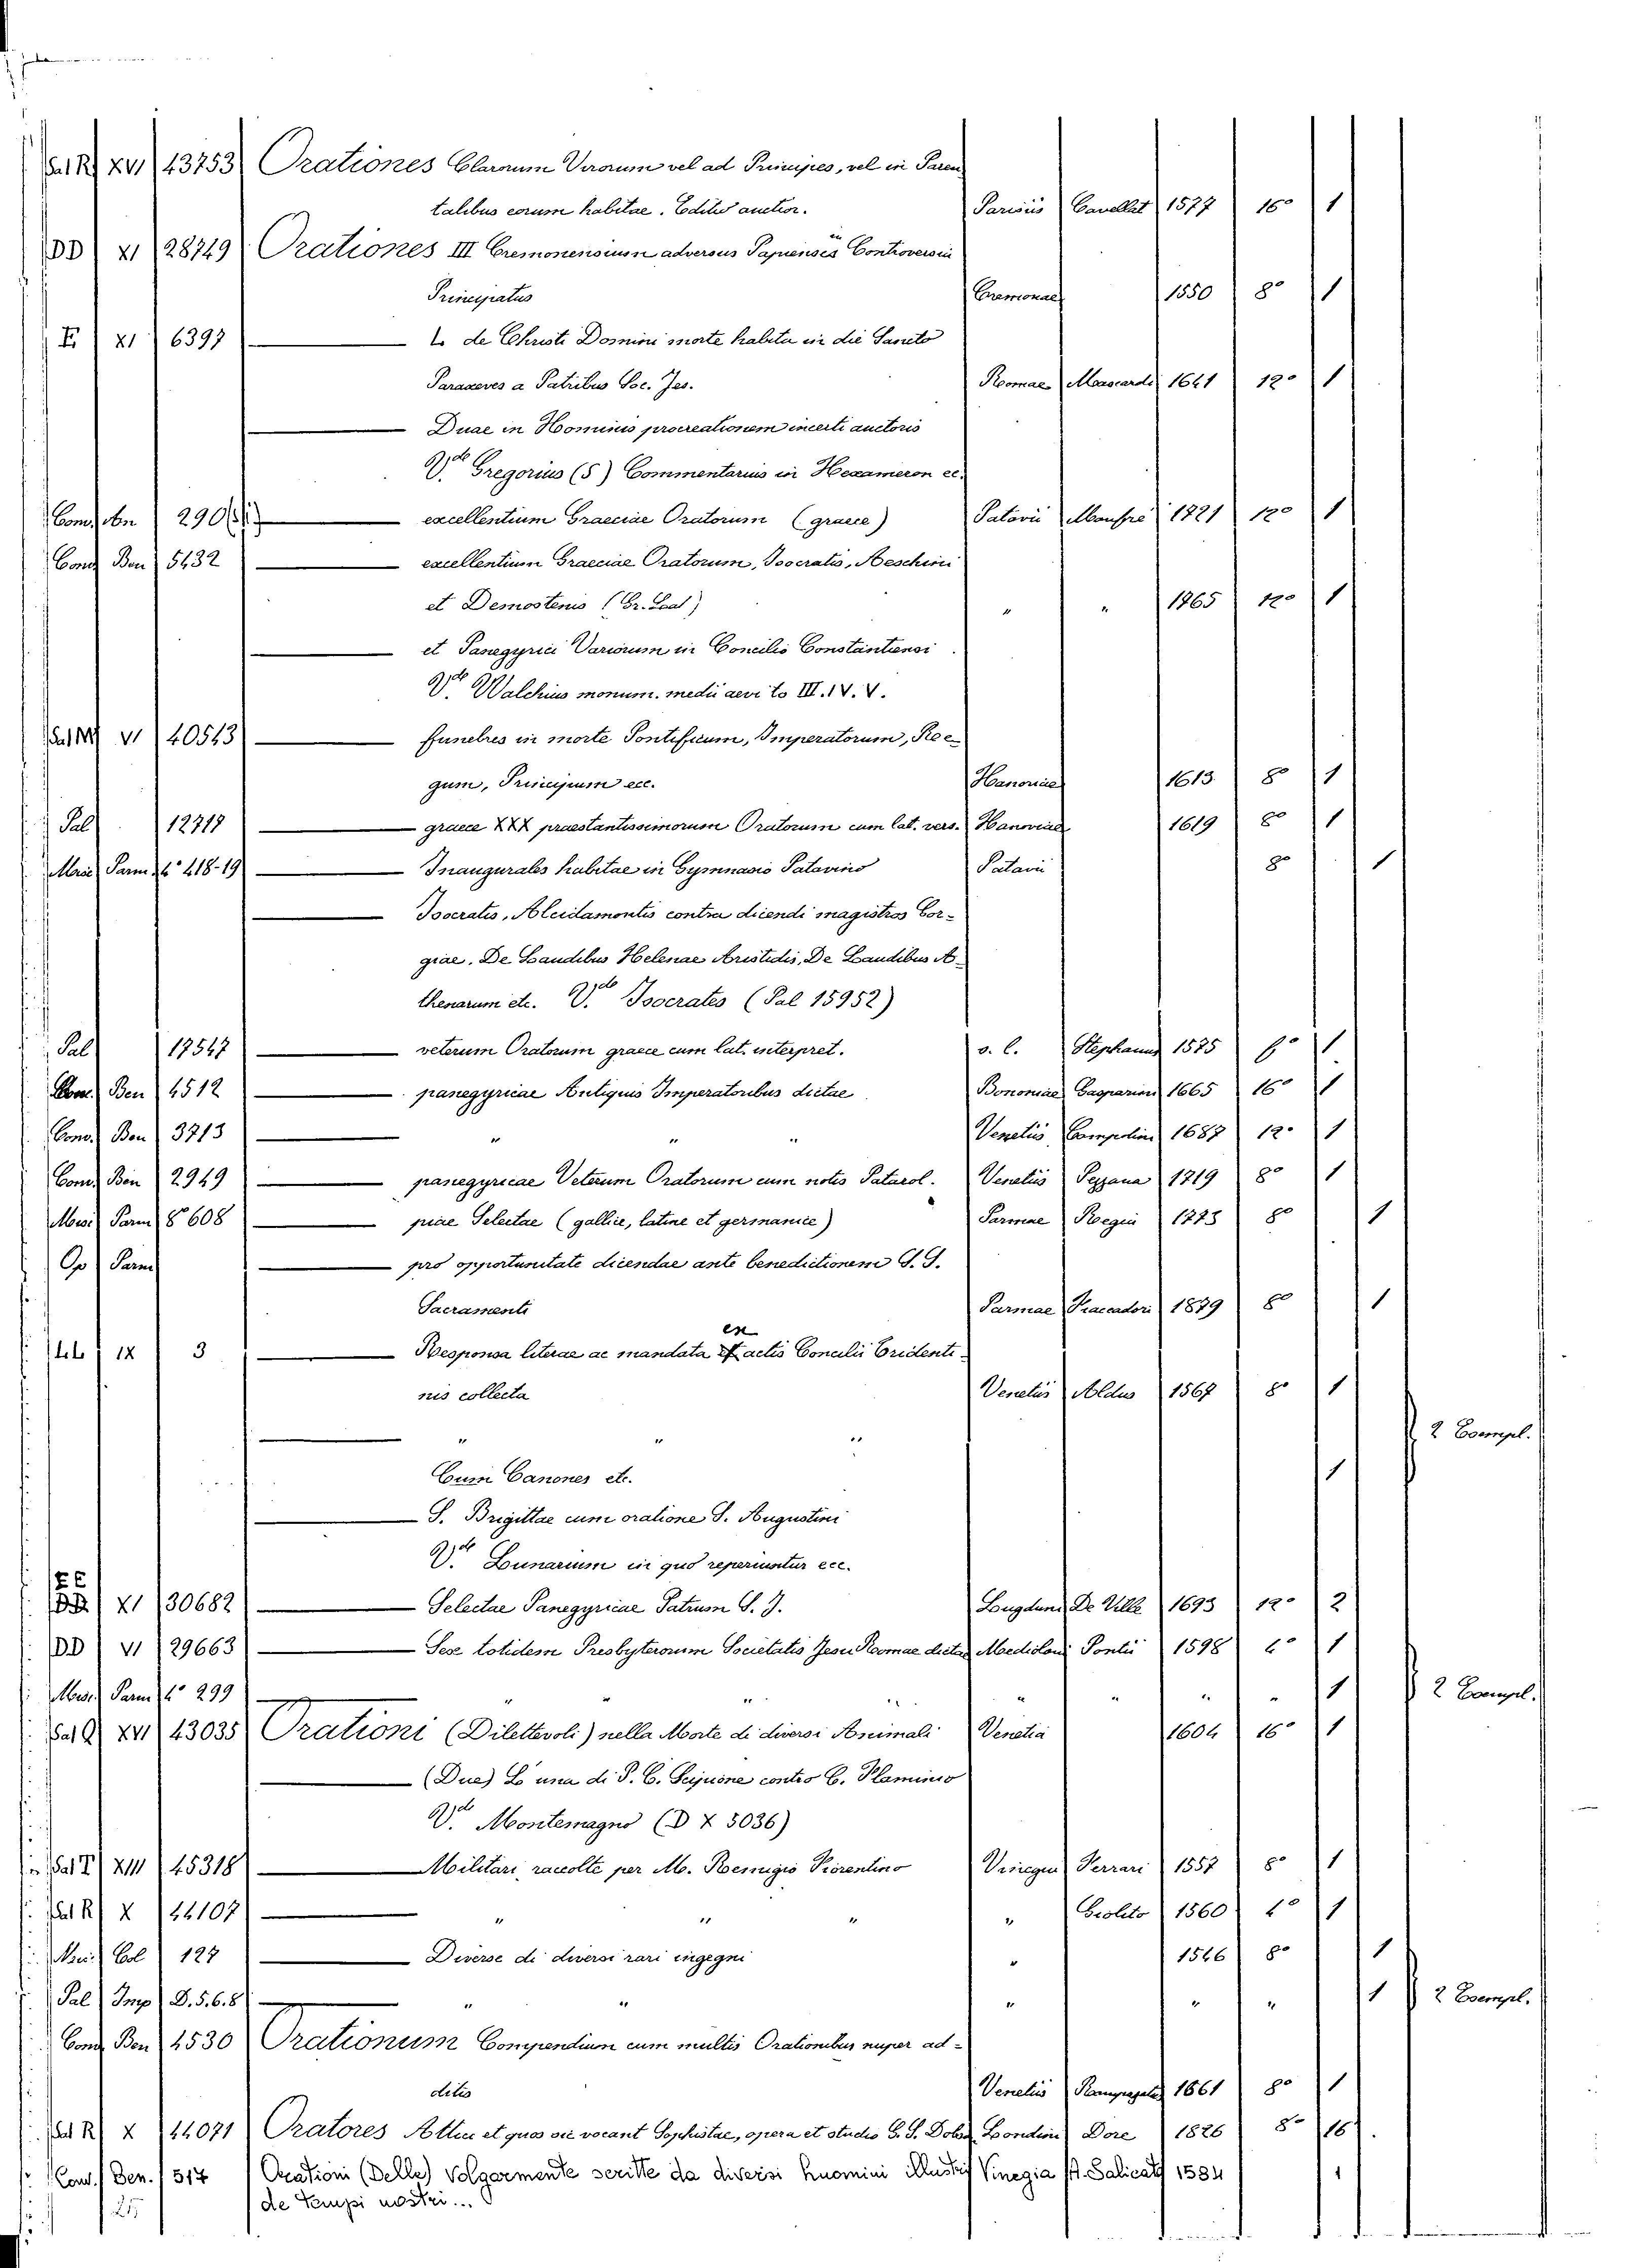 Sal R XVI 43753 Orationes Clarorum Virorum vel ad Principes, vel in Paren
talibus eorum habitae. Editio auctior. Parisiis Cavellat 1577 16° 1
DD XI 28749 Orationes III Cremonensium adversus Papienses in Controversia
Principatus Cremonae 1550 8° 1
E XI 6397 — de Christi Domini morte habita in die Sancto
Parasceves a Patribus Soc. Jes. Romae Mascardi 1641 12° 1
— Duae in Hominis procreationem incerti auctoris
V.de Gregorius (S) Commentarius in Hexameron ec.
Conv. An 290 — excellentium Graeciae Oratorum (graece) Patavii Manfrè 1721 12° 1
Conv Ben 5632 — excellentium Graeciae Oratorum, Isocratis, Aeschini
et Demostenis (Gr. Lat) " " 1765 12° 1
— et Panegyrici Variorum in Concilio Constantiensi
V.de Walchius monum. medii aevi to III. IV. V.
Sal M VI 40543 — funebres in morte Pontificum, Imperatorum, Re=
gum, Principum ecc. Hanoviae 1613 8° 1
Pal 12717 — graece XXX praestantissimorum Oratorum cum lat. vers. Hanoviae 1619 8° 1
Misc Parm 4° 418-19 — Inaugurales habitae in Gymnasio Patavino Patavii 8° 1
— Isocratis, Alcidamontis contra dicendi magistros Gor=
giae. De Laudibus Helenae Aristidis, De Laudibus A=
thenarum etc. V.de Isocrates (Pal 15952)
Pal 17547 — veterum Oratorum graece cum lat. interpret. s. l. Stephanus 1575 f° 1
Conv. Ben 4512 — panegyricae Antiquis Imperatoribus dictae Bononiae Gasparini 1665 16° 1
Conv. Ben 3713 — " " " Venetiis 1687 12° 1
Conv. Ben 2949 — panegyricae Veterum Oratorum cum notis Patarol. Venetiis Pezzana 1719 8° 1
Misc Parm 8° 608 — piae Selectae (gallice, latine et germanice) Parmae Regiis 8° 1
Op Parm — pro opportunitate dicendae ante benedictionem S. S.
Sacramenti Parmae Fiaccadori 1879 8° 1
IX 3 — Responsa literae ac mandata ex actis Concilii Tridenti=
nis collecta Venetiis Aldus 1567 8° 1
— " " " 2 Esempl.
Cum Canones etc. 1
— S. Brigittae cum oratione S. Augustini
V.de Lunarium in quo reperiuntur ecc.
EE
XI 30682 — Selectae Panegyricae Patrum S. J. Lugduni De Ville 1693 12° 2
DD VI 29663 — Sex totidem Presbyterorum Societatis Jesu Romae dictae Mediolani Pontii 1598 4° 1
Misc. Parm 4° 299 — " " " " " " " " 1 2 Esempl.
Sal Q XVI 43035 Orationi (Dilettevoli) nella Morte di diversi Animali Venetia 1604 16° 1
— (Due) L' una di P. C. Scipione contro C. Flaminio
V.de Montemagno (D X 5036)
Sal T XIII 45318 — Militari, raccolte per M. Remigio Fiorentino Vinegia Ferrari 1557 8° 1
Sal R X 44107 — " " " " Giolito 1560 4° 1
Misc. Col 127 — Diverse di diversi rari ingegni " 1546 8° 1
Pal Imp D. 5. 6. 8 — " " " " " 1 2 Esempl.
Conv Ben 4530 Orationum Compendium cum multis Orationibus nuper ad=
ditis Venetiis 8° 1
Sal R X 44071 Oratores Attici et quos sic vocant Sophistae, opera et studio G. S. Dobs Londini Dove 1826 8° 16
Conv. Ben. 517 Orationi (Delle) Volgarmente scritte da diversi huomini illustri Vinegia A. Salicato 1584 1
25 de tempi nostri...